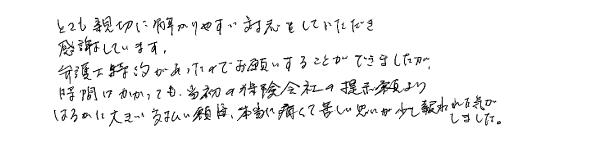 とても親切に解かりやすい対応をしていただき
感謝しています。
弁護士特約があったのでお願いすることができましたが、
時間はかかっても、当初の保険会社の提示額より
はるかに大きい支払い額は、本当に痛くて苦しい思いが少し報われた気が
しました。